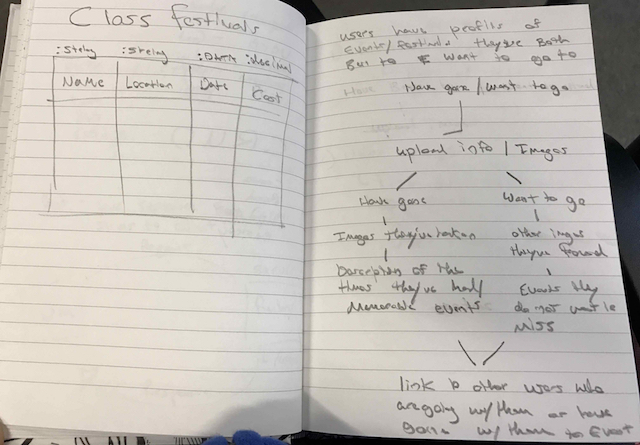 Class Festivals
:String :String :Date :decimal
Name Location Date Cost
users have profiles of
Events/Festivals they've Both
But to want to go to
Have gone / want to go
upload info / Images
Have gone
Want to go
Images they've taken
other images
they've found
Description of the
times they've had/
Memorable events
Events they
do not want to
miss
link to other users who
are going w/ them or have
gone w/ them to Event